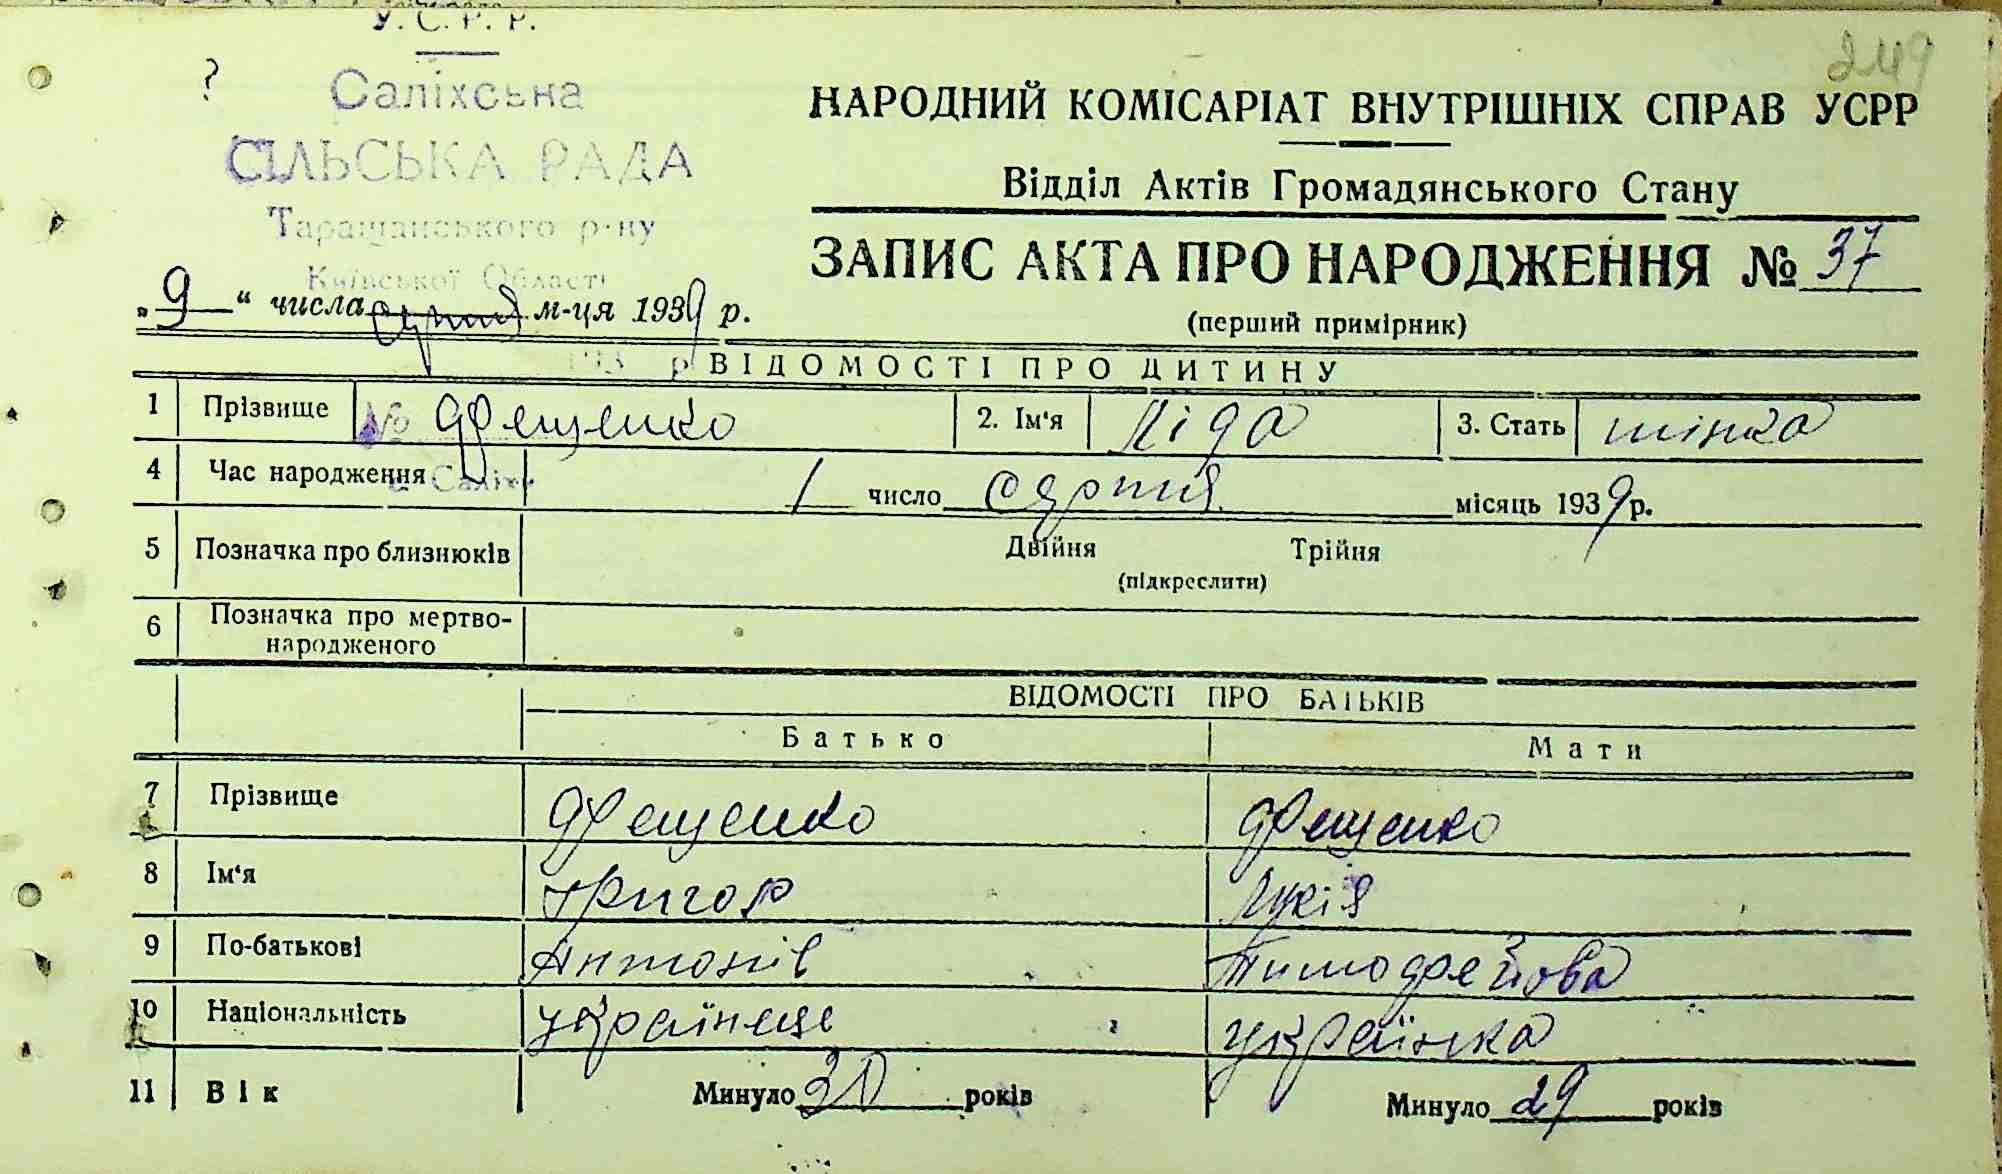 249
У. С. Р. Р.
?
Саліхська
СІЛЬСЬКА РАДА
Таращанського р-ну
Київської Області
НАРОДНИЙ КОМІСАРІАТ ВНУТРІШНІХ СПРАВ УСРР
Відділ Актів Громадянського Стану
ЗАПИС АКТА ПРО НАРОДЖЕННЯ № 37
(перший примірник)
„9“ числа серпня м-ця 1939 р.
193 р
ВІДОМОСТІ ПРО ДИТИНУ
1 Прізвище № Фещенко 2. Ім'я Ліда 3. Стать жінка
4 Час народження 1 число серпня місяць 1939 р.
с. Саліха
5 Позначка про близнюків Двійня Трійня
(підкреслити)
6 Позначка про мертво-
народженого
ВІДОМОСТІ ПРО БАТЬКІВ
Батько Мати
7 Прізвище Фещенко Фещенко
8 Ім'я Григор Лукія
9 По-батькові Антонів Тимофейова
10 Національність українець українка
11 Вік Минуло 30 років Минуло 29 років